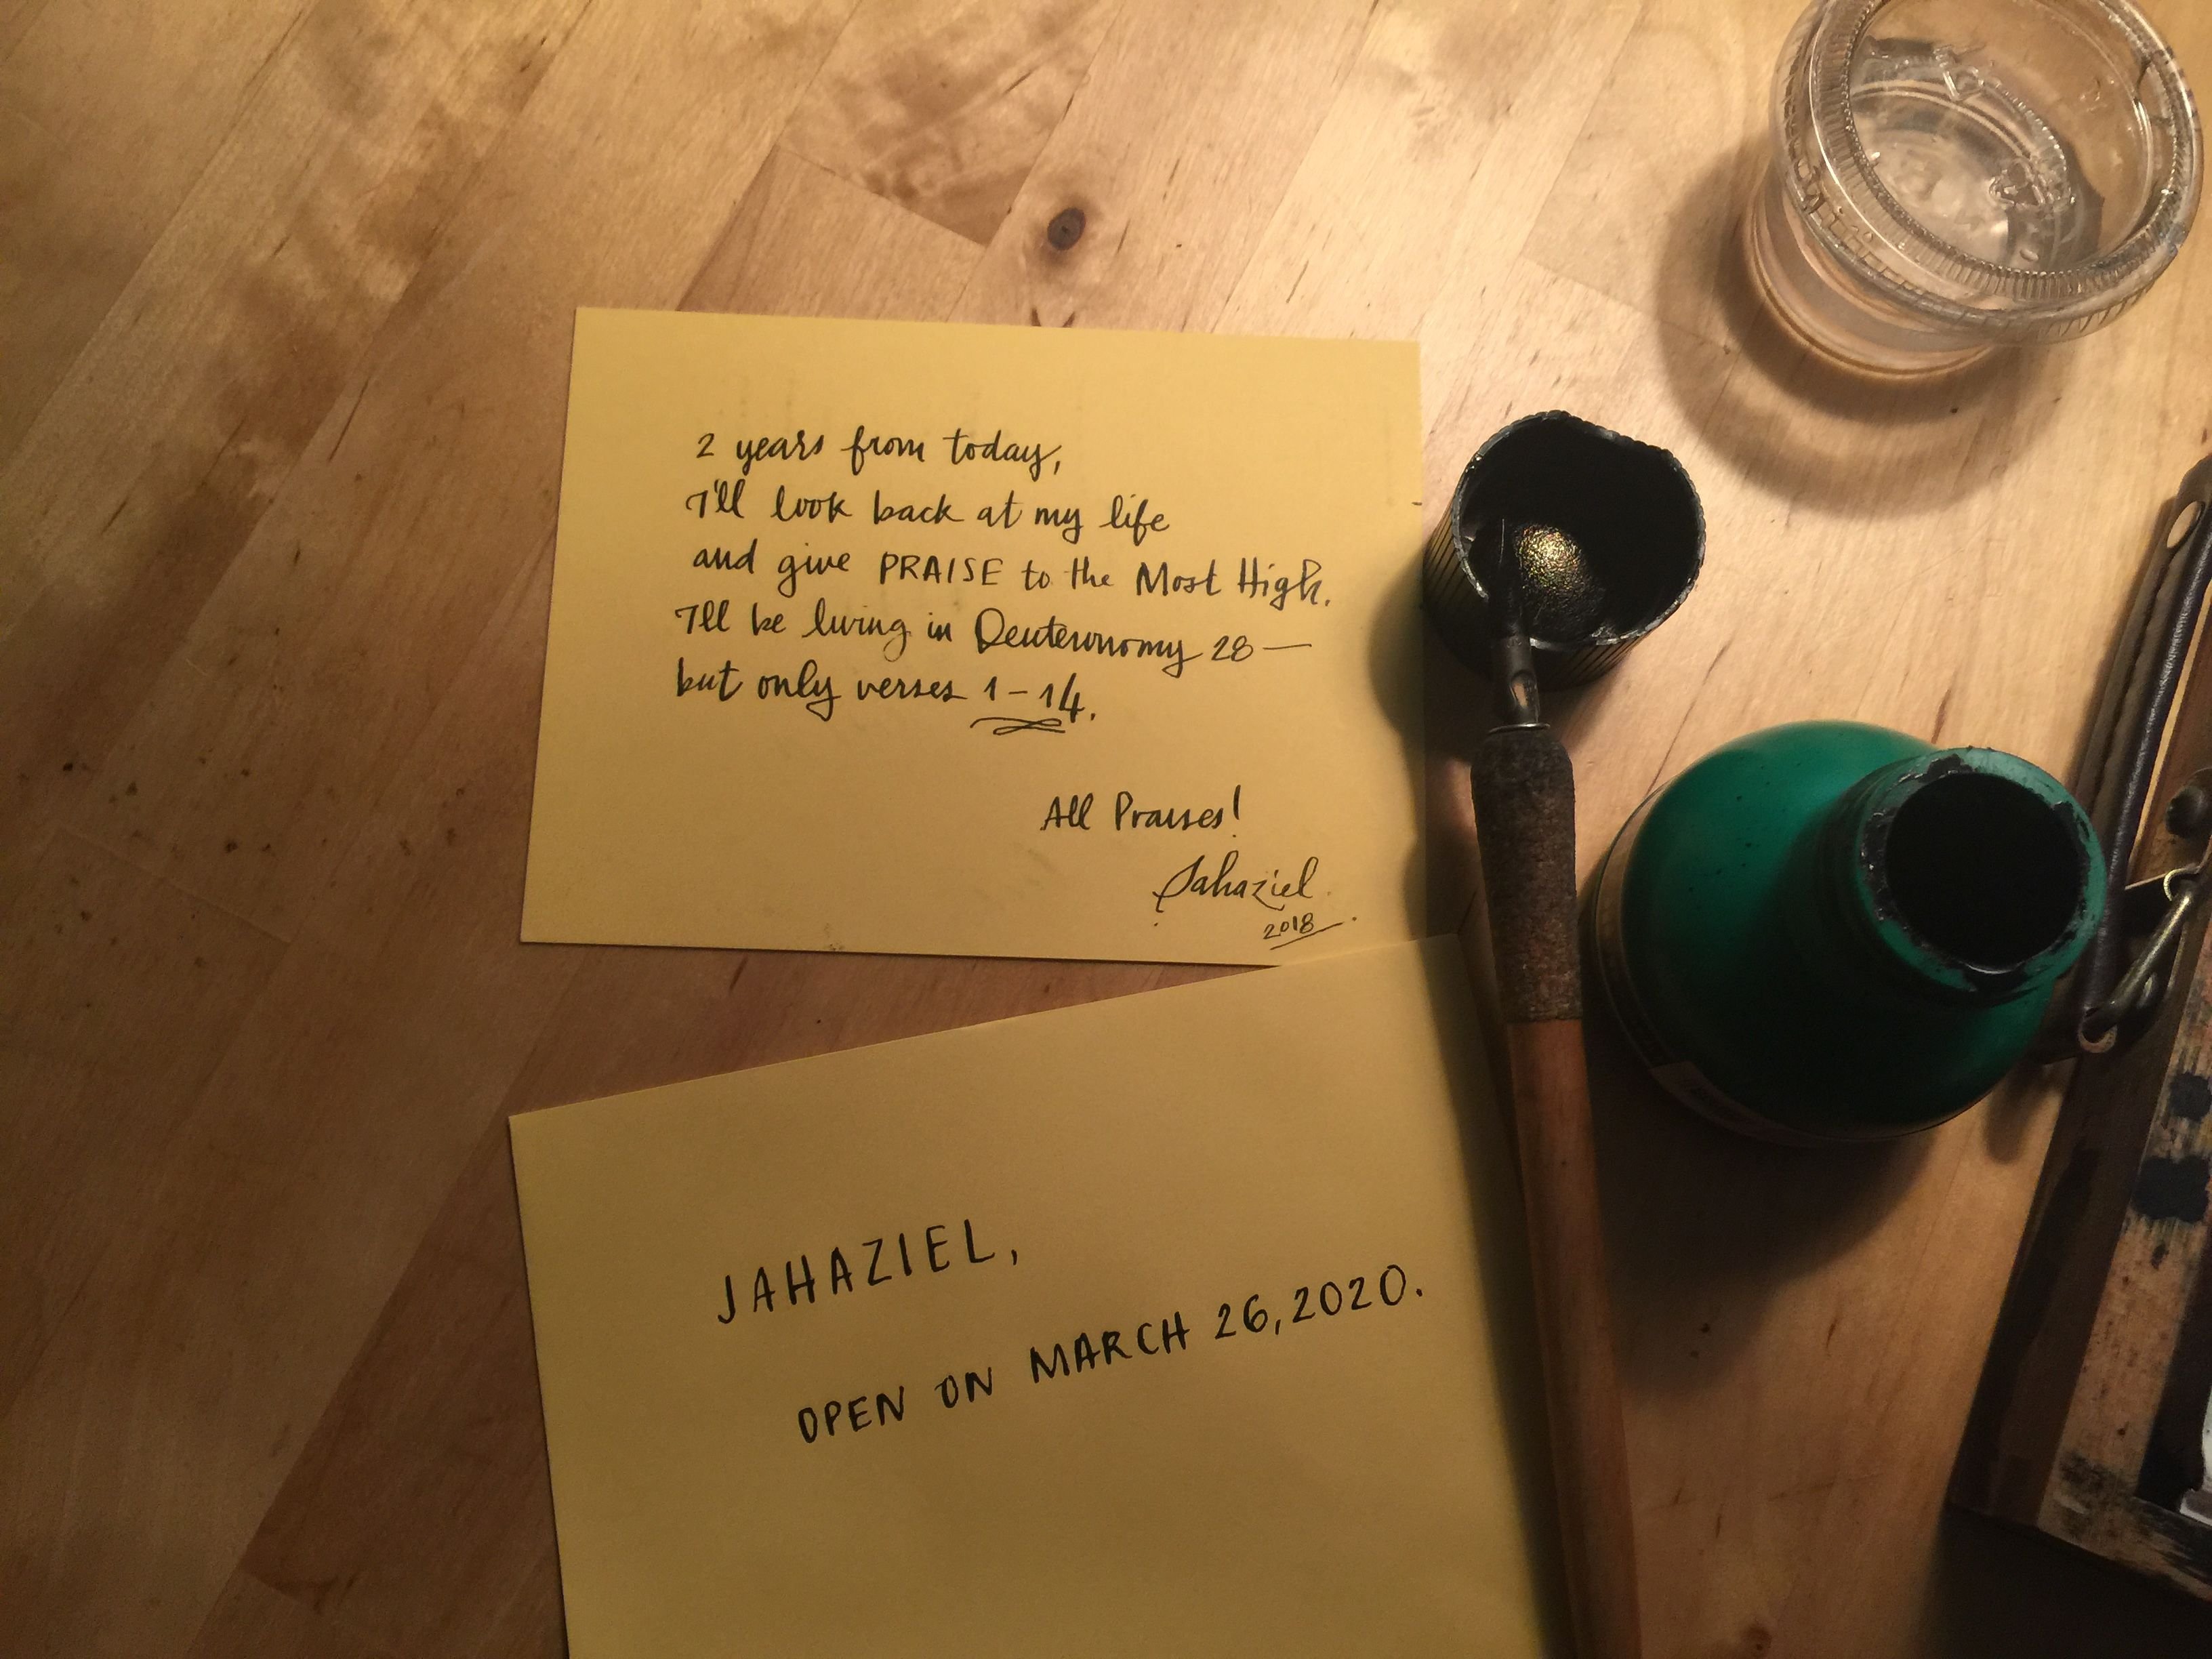 2 years from today,
I'll look back at my life
and give PRAISE to the Most High.
I'll be living in Deuteronomy 28—
but only verses 1-14.
All Praises!
Jahaziel
2018
JAHAZIEL,
OPEN ON MARCH 26, 2020.